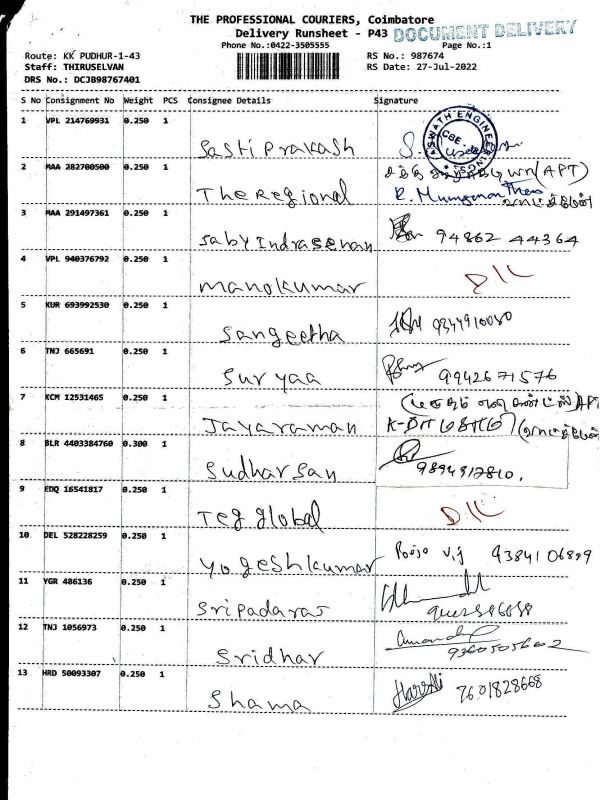 THE PROFESSIONAL COURIERS, Coimbatore
Delivery Runsheet - P43
DOCUMENT DELIVERY
Phone No.:0422-3505555
Page No.:1
Route: KK PUDHUR-1-43
RS No.: 987674
Staff: THIRUSELVAN
RS Date: 27-Jul-2022
DRS No.: DCJB98767401
S No Consignment No Weight PCS Consignee Details Signature
1 VPL 214769931 0.250 1 Sasti Prakash
SWATH ENGINEERING CBE
2 MAA 282700500 0.250 1 The Regional (APT)
R.
3 MAA 291497361 0.250 1 Saby Indrasenan 94862 44364
4 VPL 940376792 0.250 1 manokumar D/L
5 KUR 693992530 0.250 1 Sangeetha 9344910080
6 TNJ 665691 0.250 1 Suryaa 9942671576
7 KCM 12531465 0.250 1 Jayaraman
8 BLR 4403384760 0.300 1 Sudharsan 9894917810.
9 EDQ 16541817 0.250 1 Teg global D/L
10 DEL 528228259 0.250 1 Yogeshkumar Pooja v.j 9384106899
11 YGR 486136 0.250 1 Sripadaras
12 TNJ 1056973 0.250 1 Sridhar 9360505602
13 HRD 50093307 0.250 1 Shama 7601828668